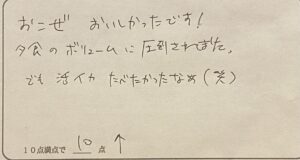 おこぜ おいしかったです!
夕食のボリュームに圧倒されました。
でも 活イカ たべたかったなぁ(笑)
10点満点で 10 点 ↑